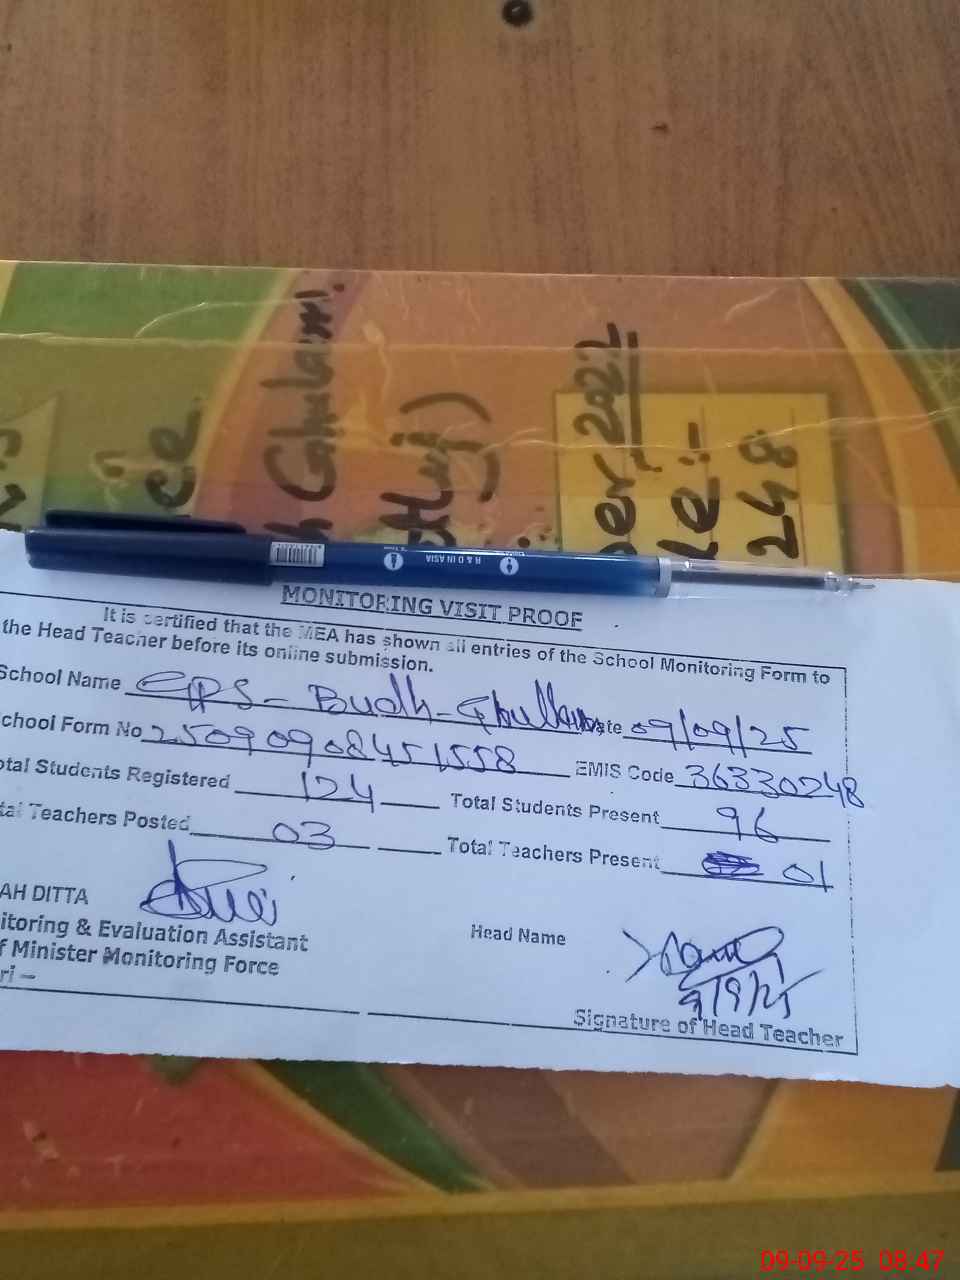 ce
h Ghulam.
ttuj)
ber, 2022
de:-
248
R & D IN ASIA
MONITORING VISIT PROOF
It is certified that the MEA has shown all entries of the School Monitoring Form to
the Head Teacher before its online submission.
School Name GPS - Budh - Ghullam ate 09/09/25
chool Form No 25090908451558 EMIS Code 36330248
otal Students Registered 124 Total Students Present 96
tal Teachers Posted 03 Total Teachers Present 01
AH DITTA
itoring & Evaluation Assistant Head Name
f Minister Monitoring Force
ri – 9/9/25
Signature of Head Teacher
09-09-25 08:47